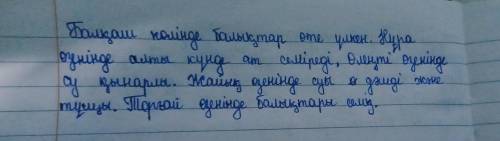 Балқаш көлінде балықтар өте үлкен. Нұра
өзенінде алты күнде ат семіреді, Өлеңті өзенінде
су қынарлы. Жайық өзенінде суы дәмді және
тұщы. Торғай өзенінде балықтары семіз.